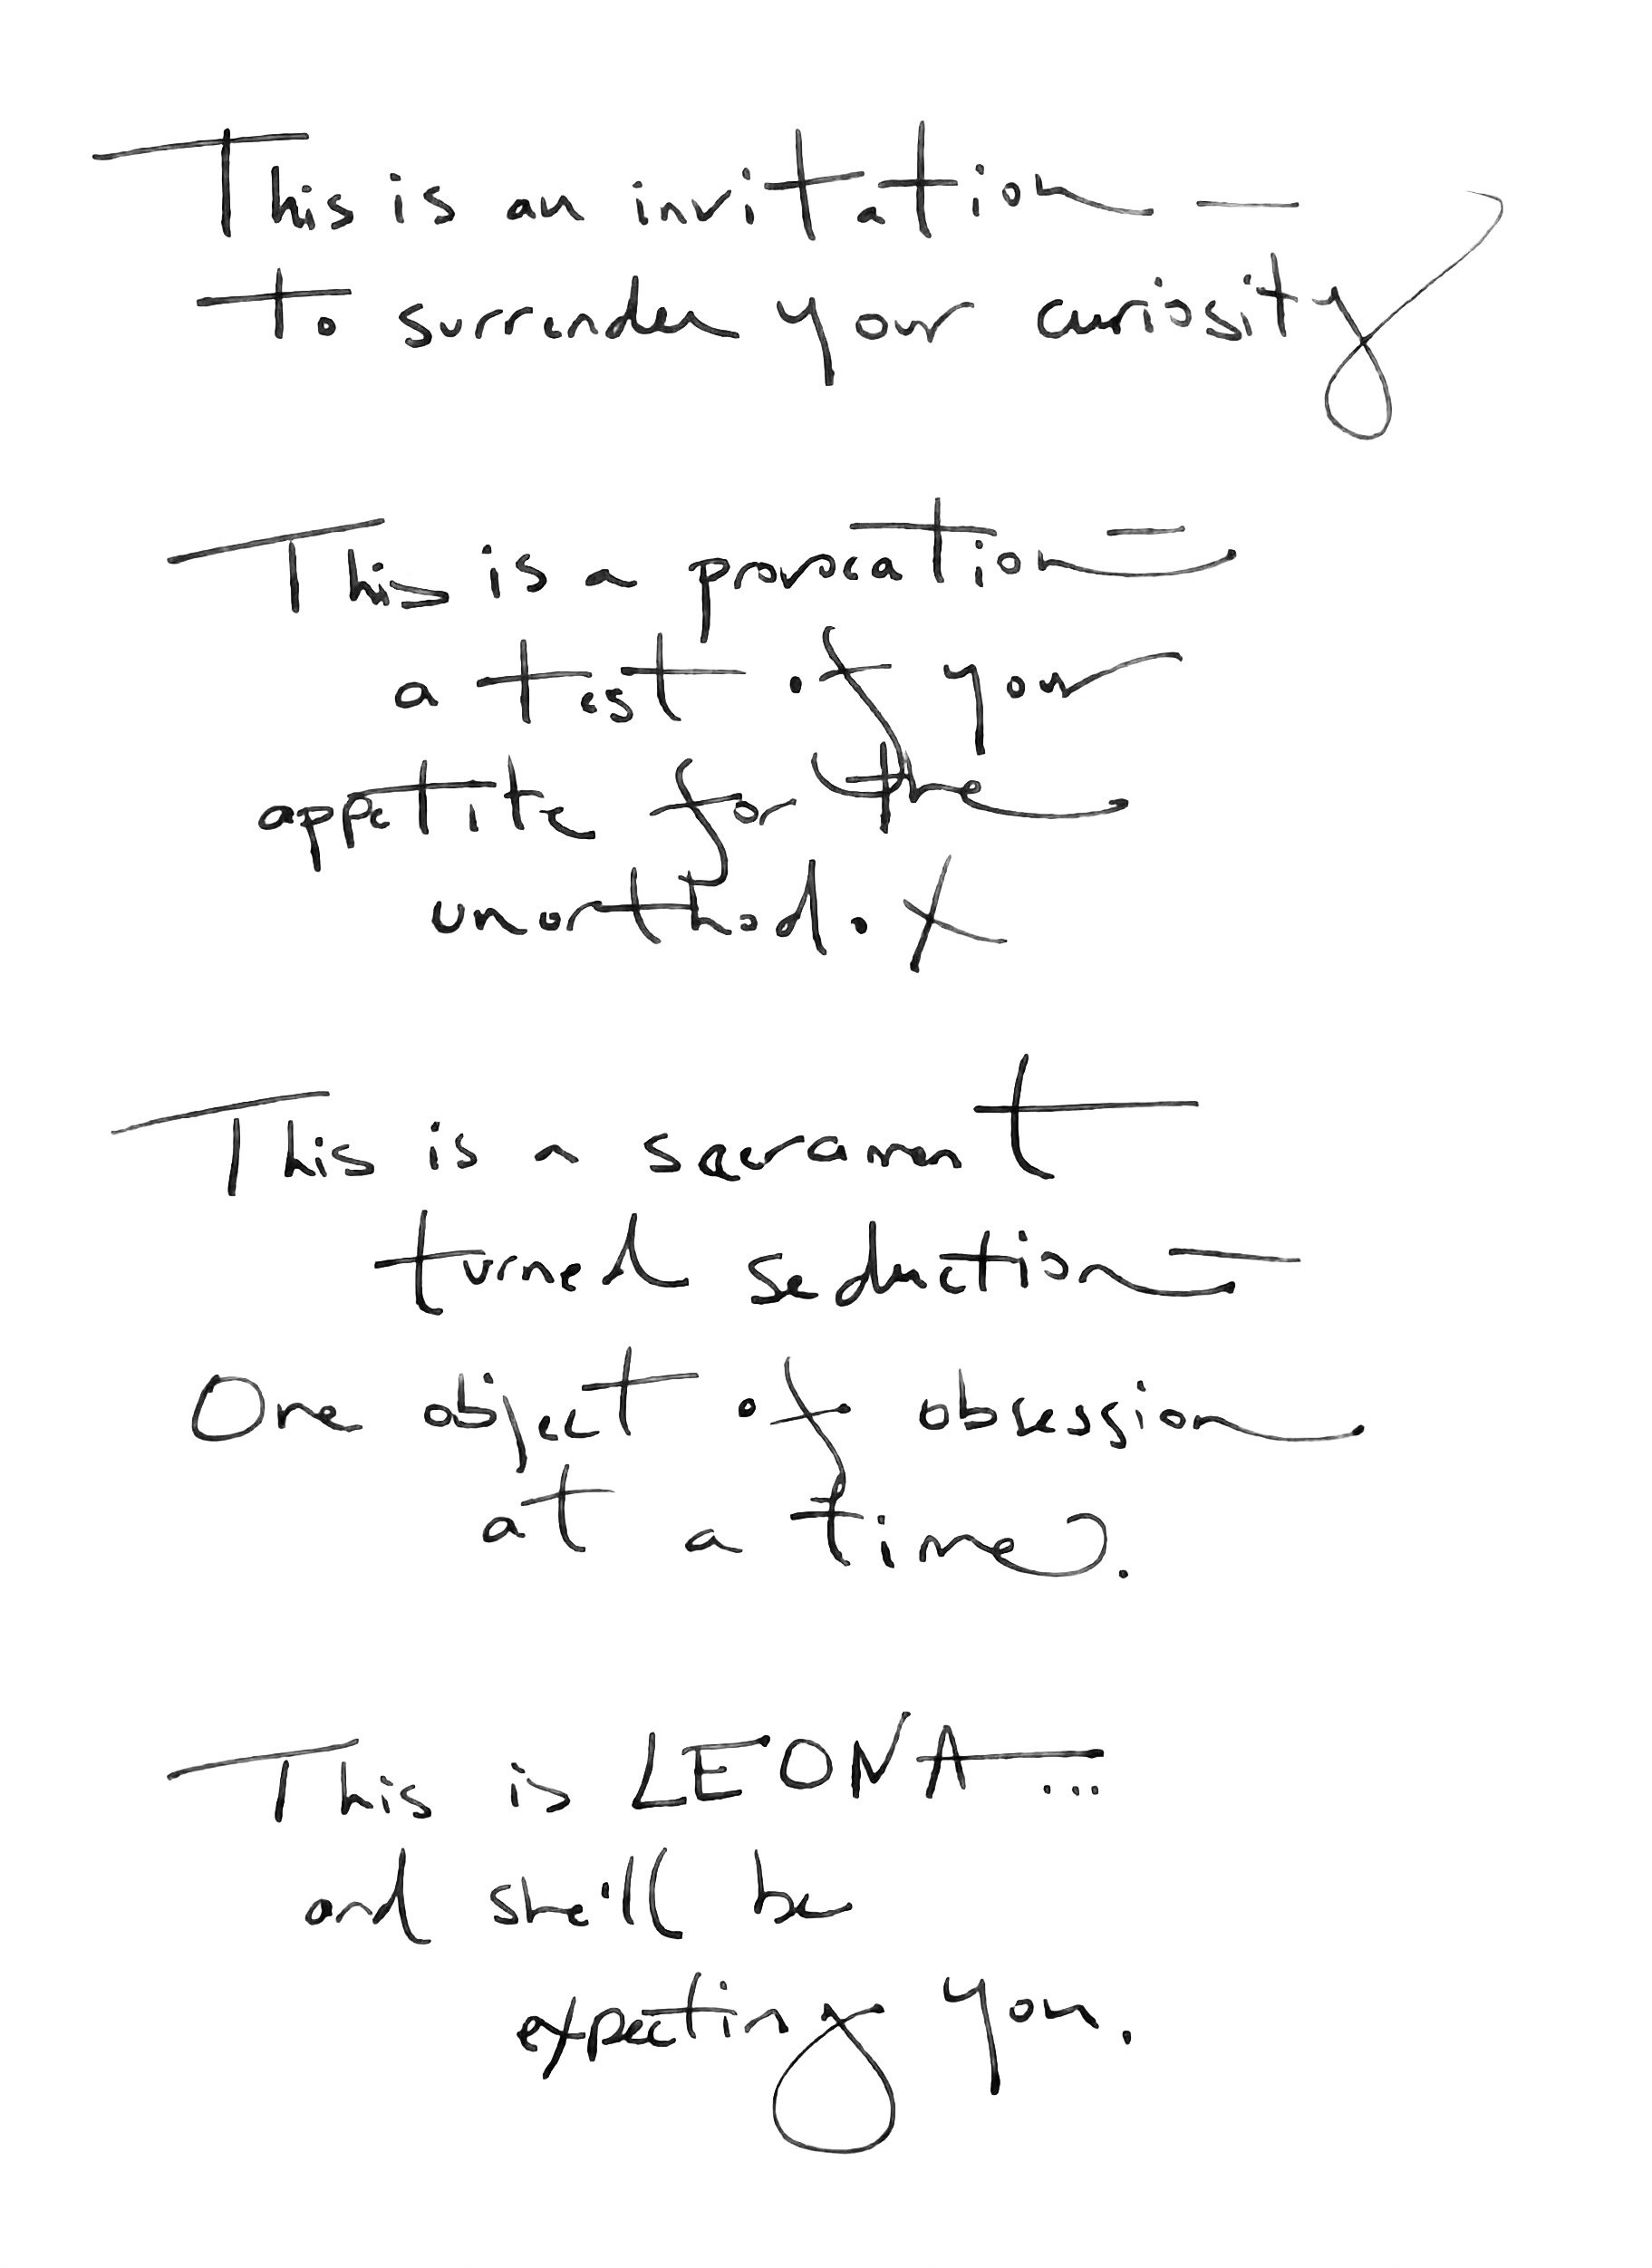 This is an invitation —
to surrender your curiosity
This is a provocation —
a test of your
appetite for the
unorthodox
This is a sacrament
turned seduction —
One object of obsession
at a time.
This is LEONA...
and she'll be
expecting you.